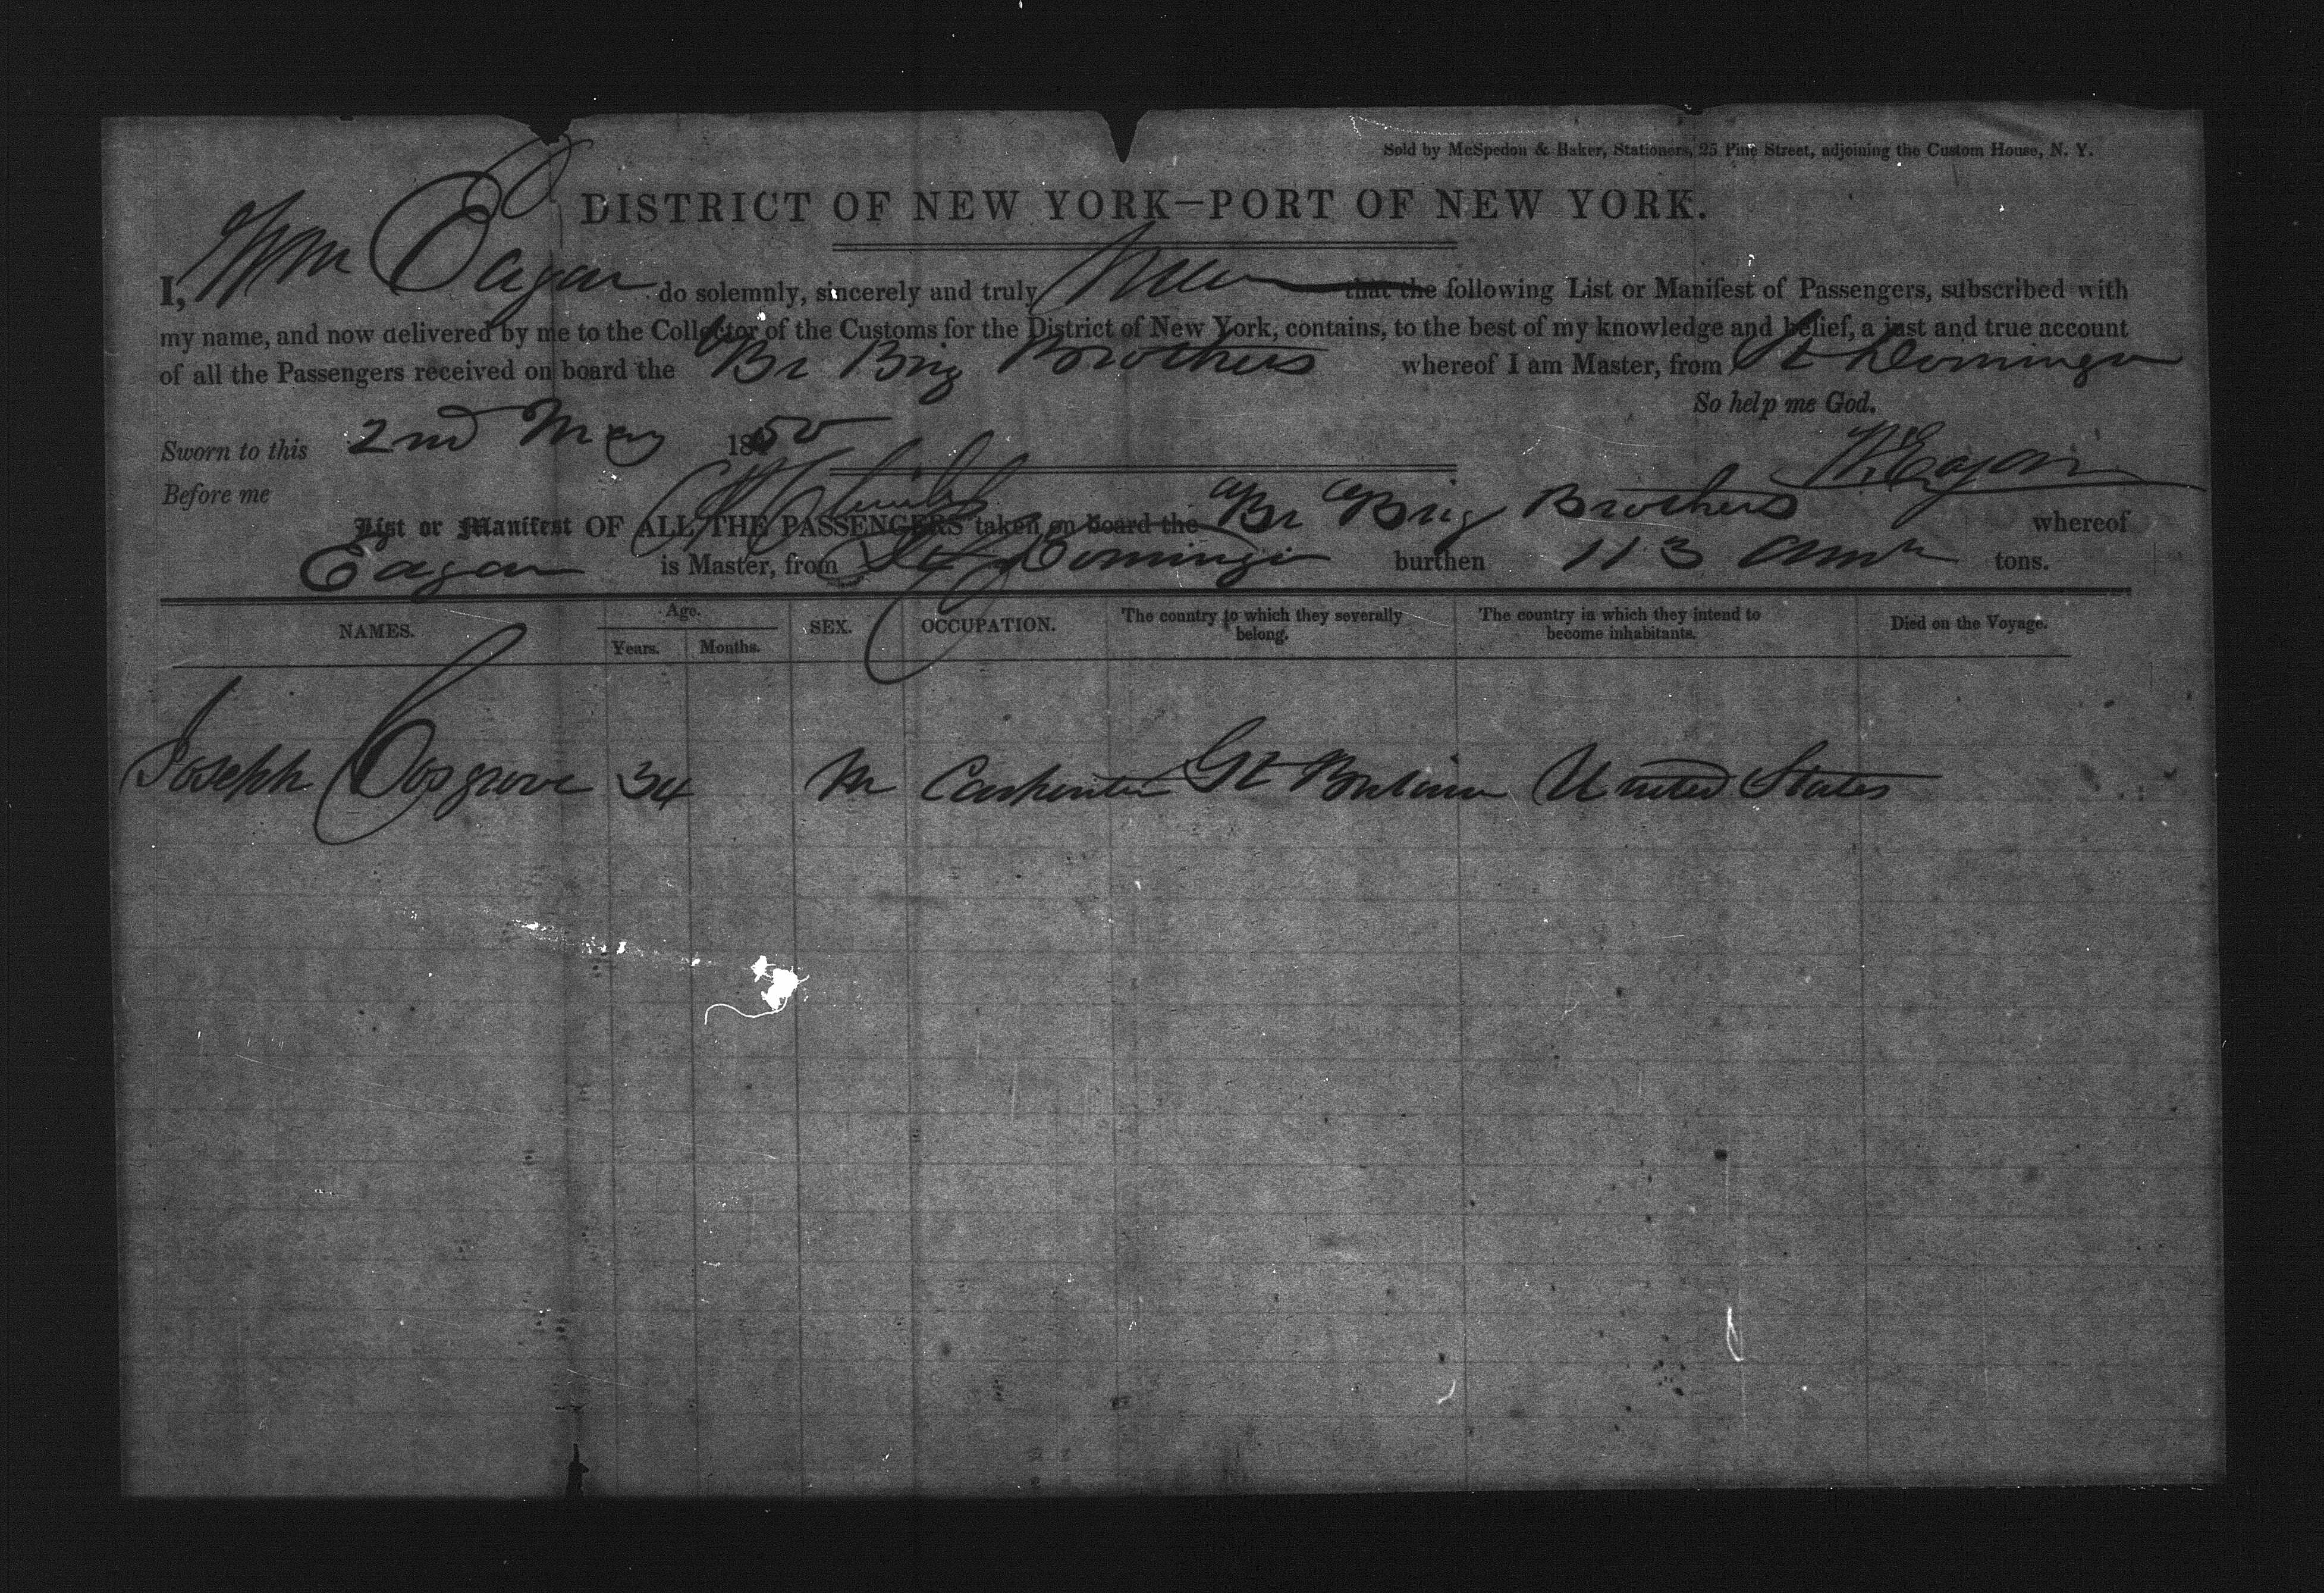 Sold by McSpedon & Baker, Stationers, 25 Pine Street, adjoining the Custom House, N. Y.
DISTRICT OF NEW YORK—PORT OF NEW YORK.
I, Wm Eagan do solemnly, sincerely and truly swear that the following List or Manifest of Passengers, subscribed with
my name, and now delivered by me to the Collector of the Customs for the District of New York, contains, to the best of my knowledge and belief, a just and true account
of all the Passengers received on board the Br Brig Brothers whereof I am Master, from St Domingo
So help me God.
Sworn to this 2nd May 1850
W. Eagan
Before me
List or Manifest OF ALL THE PASSENGERS taken on board the Br Brig Brothers whereof
Eagan is Master, from St Domingo burthen 113 tons.
NAMES. Age. Years. Months. SEX. OCCUPATION. The country to which they severally belong. The country in which they intend to become inhabitants. Died on the Voyage.
Joseph Cosgrove 34 M Carpenter Gt Britain United States